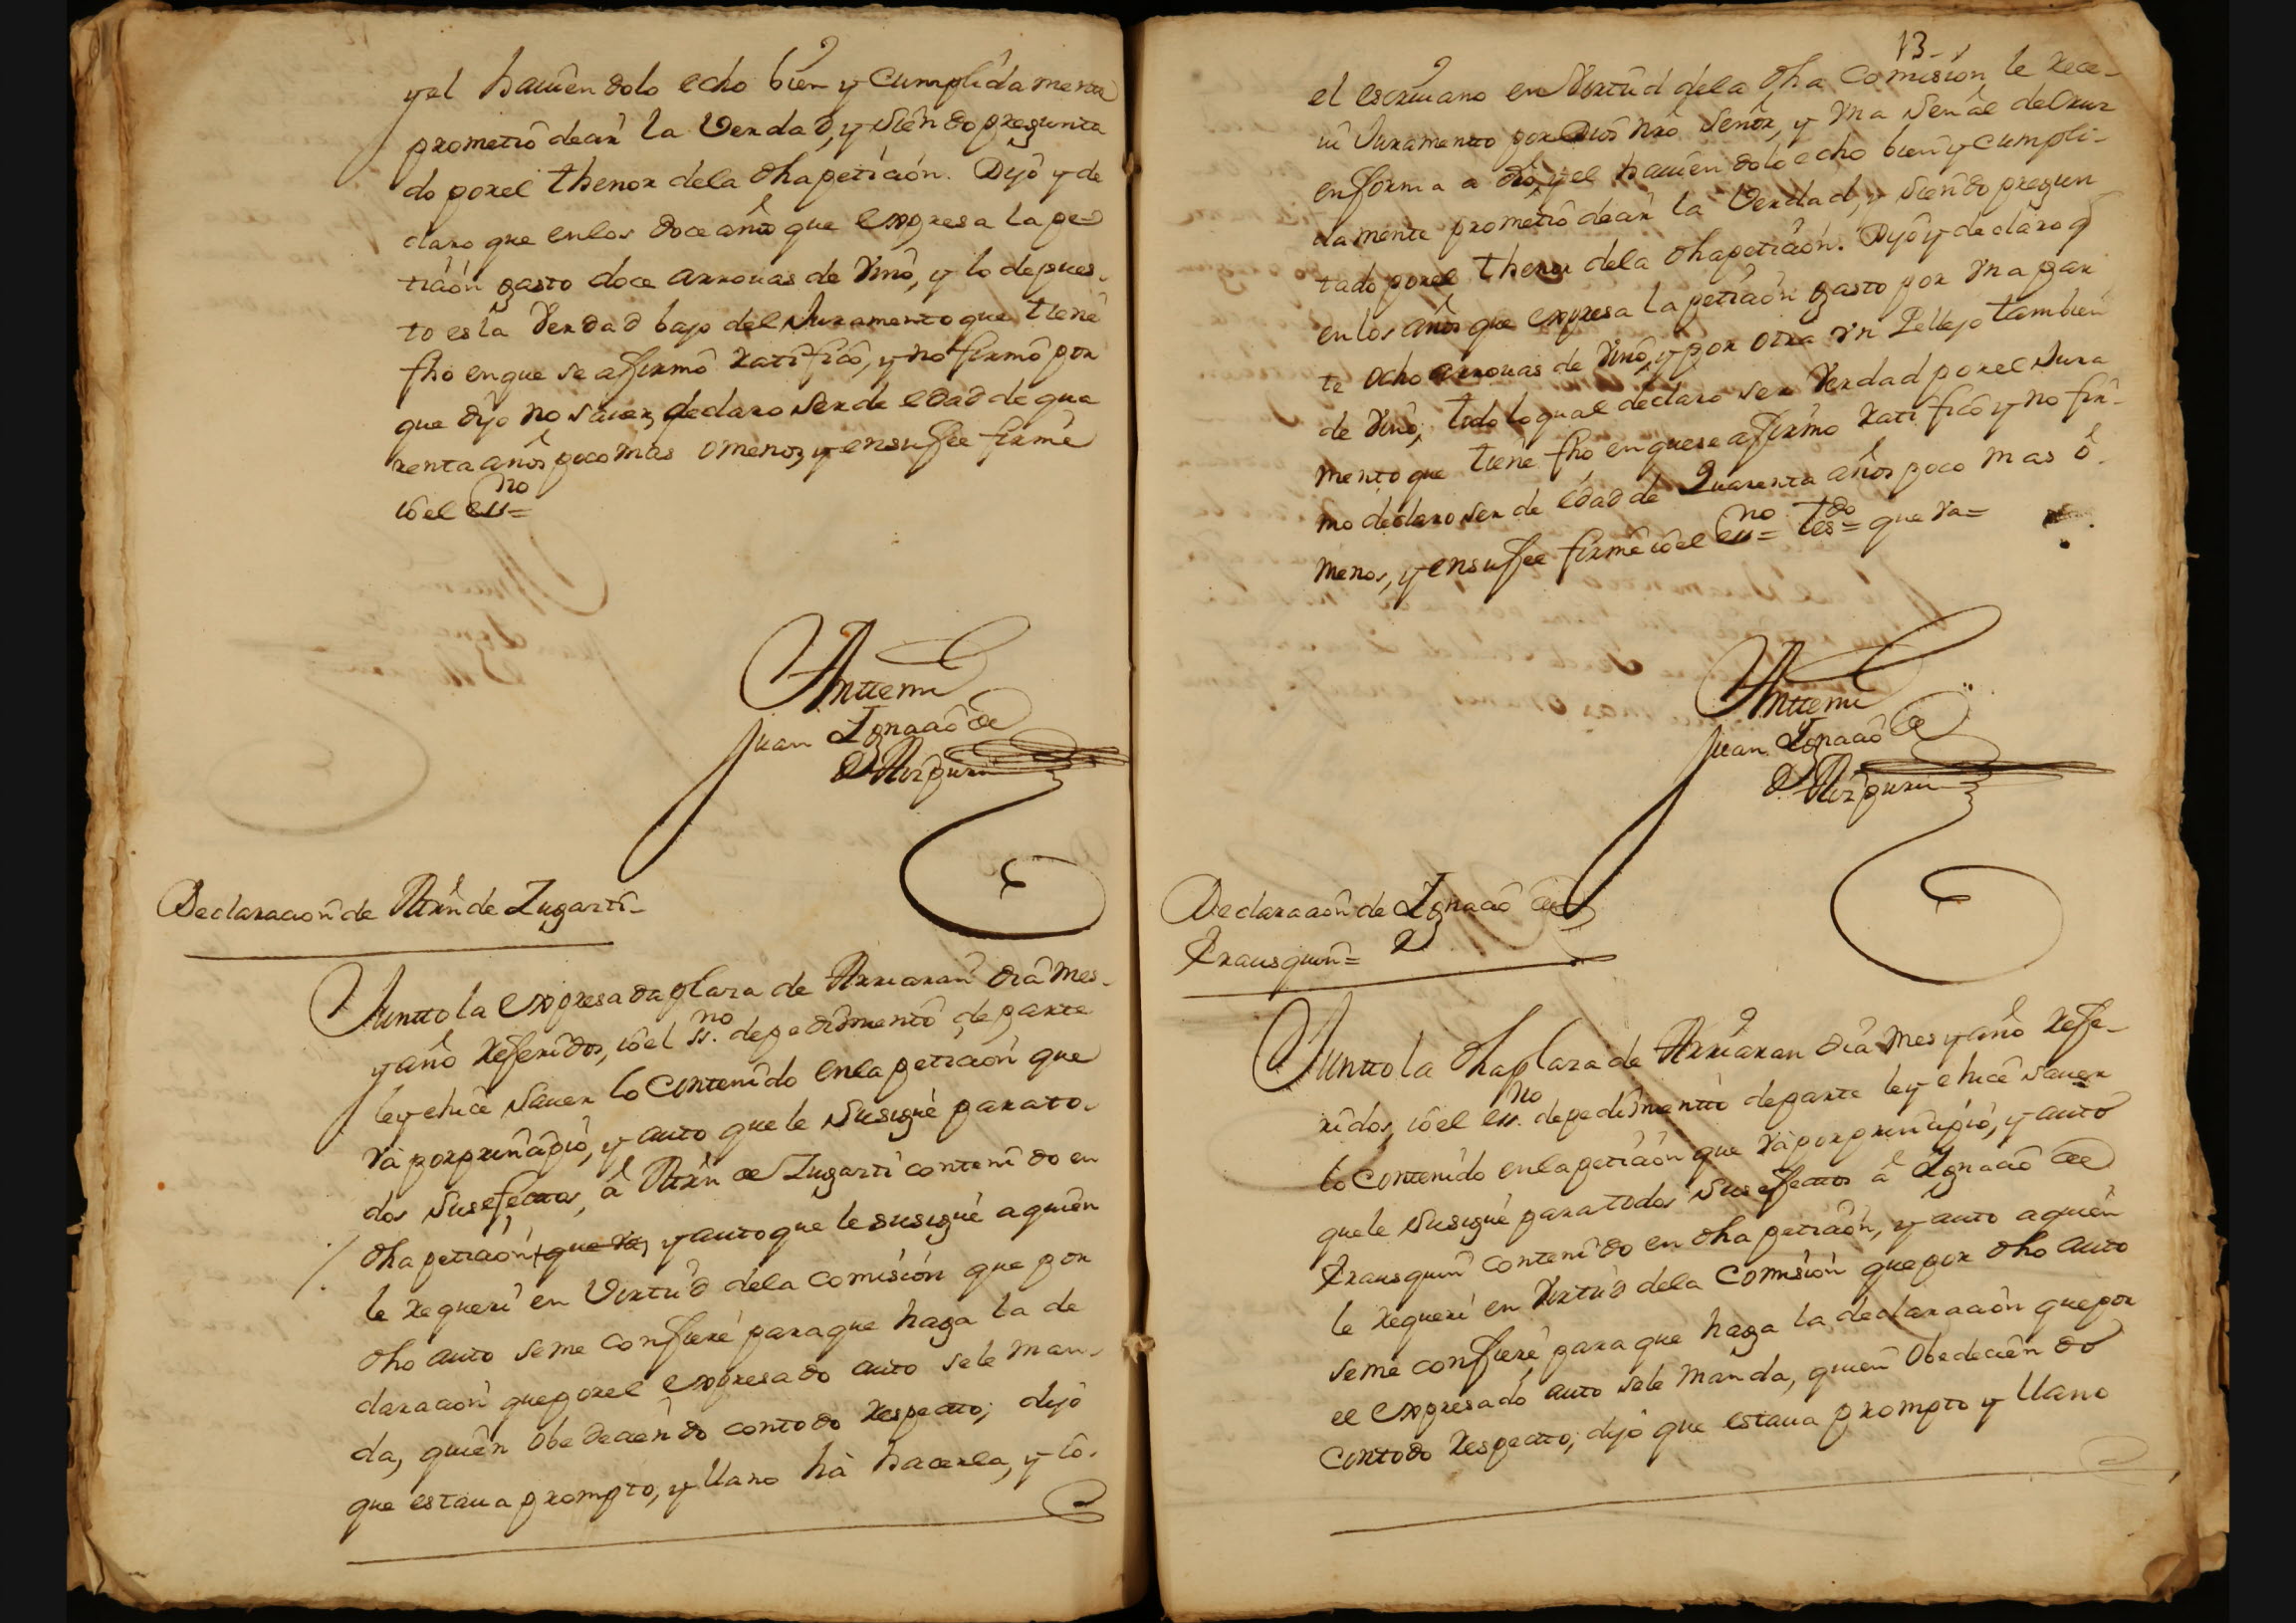 y el hauiendolo echo bien y Cumplidamente
prometio decir la Verdad, y siendo pregunta
do por el thenor dela dha peticion. Dijo y de
claro que en los doce años que expresa la pe-
ticion gasto doce arrouas de Vino, y lo depues-
to es la Verdad bajo del Juramento que tiene
fho en que se afirmo ratifico, y no firmo por
que dijo no sauer, declaro ser de edad de qua
renta años poco mas o menos, y en su fee firme
io el essno=
Anttemi
Juan Ignacio de
Declaracion de Mrn de Zugasti-
Juntto la expresada plaza de Arriaran dia mes-
y año Referidos, io el ssno. de pedimento de parte
ley e hice sauer lo Contenido en la peticion que
va por principio, y auto que le susigue para to-
dos sus efectos, â Mrn de Zugasti contenido en
dha peticion, que va, y auto que le susigue a quien
le requeri en Virtud dela comision que por
dho auto se me confiere para que haga la de
claracion que por el expresado auto se le man-
da, quien obedeciendo con todo respecto; dijo
que estaua prompto, y llano hà hacerla, y io.
13-
el escriuano en Virtud dela dha Comision, le rece-
ui Juramento por Dios nro Señor, y Vna Señal de Cruz
en forma a dro, y el hauiendolo echo bien y cumpli-
damente prometio decir la Verdad, y siendo pregun
tado por el thenor dela dha peticion. Dijo y declaro q
en los años que expresa la peticion gasto por Vna par
te ocho arrouas de Vino, y por otra vn Pellejo tambien
de Vino; todo lo qual declaro ser Verdad por el Jura
mento que tiene fho en que se afirmo ratifico y no fir-
mo declaro ser de edad de Quarenta años poco mas ô
menos, y en su fee firme io el essno= tesdo= que va=
Anttemi
Juan Ignacio de
Declaracion de Ignacio de
Yrausquin=
Juntto la dha plaza de Arriaran dia mes y año Refe-
ridos, io el essno. de pedimentto de parte ley e hice sauer
lo Contenido en la peticion que và por principio, y auto
que le susigue para todos sus efectos â Ignacio de
Yrausquin contenido en dha peticion, y auto a quien
le requeri en Virtud dela Comision que por dho auto
se me confiere para que haga la declaracion que por
el expresado auto se le manda, quien Obedeciendo
Con todo respecto; dijo que estaua prompto y llano